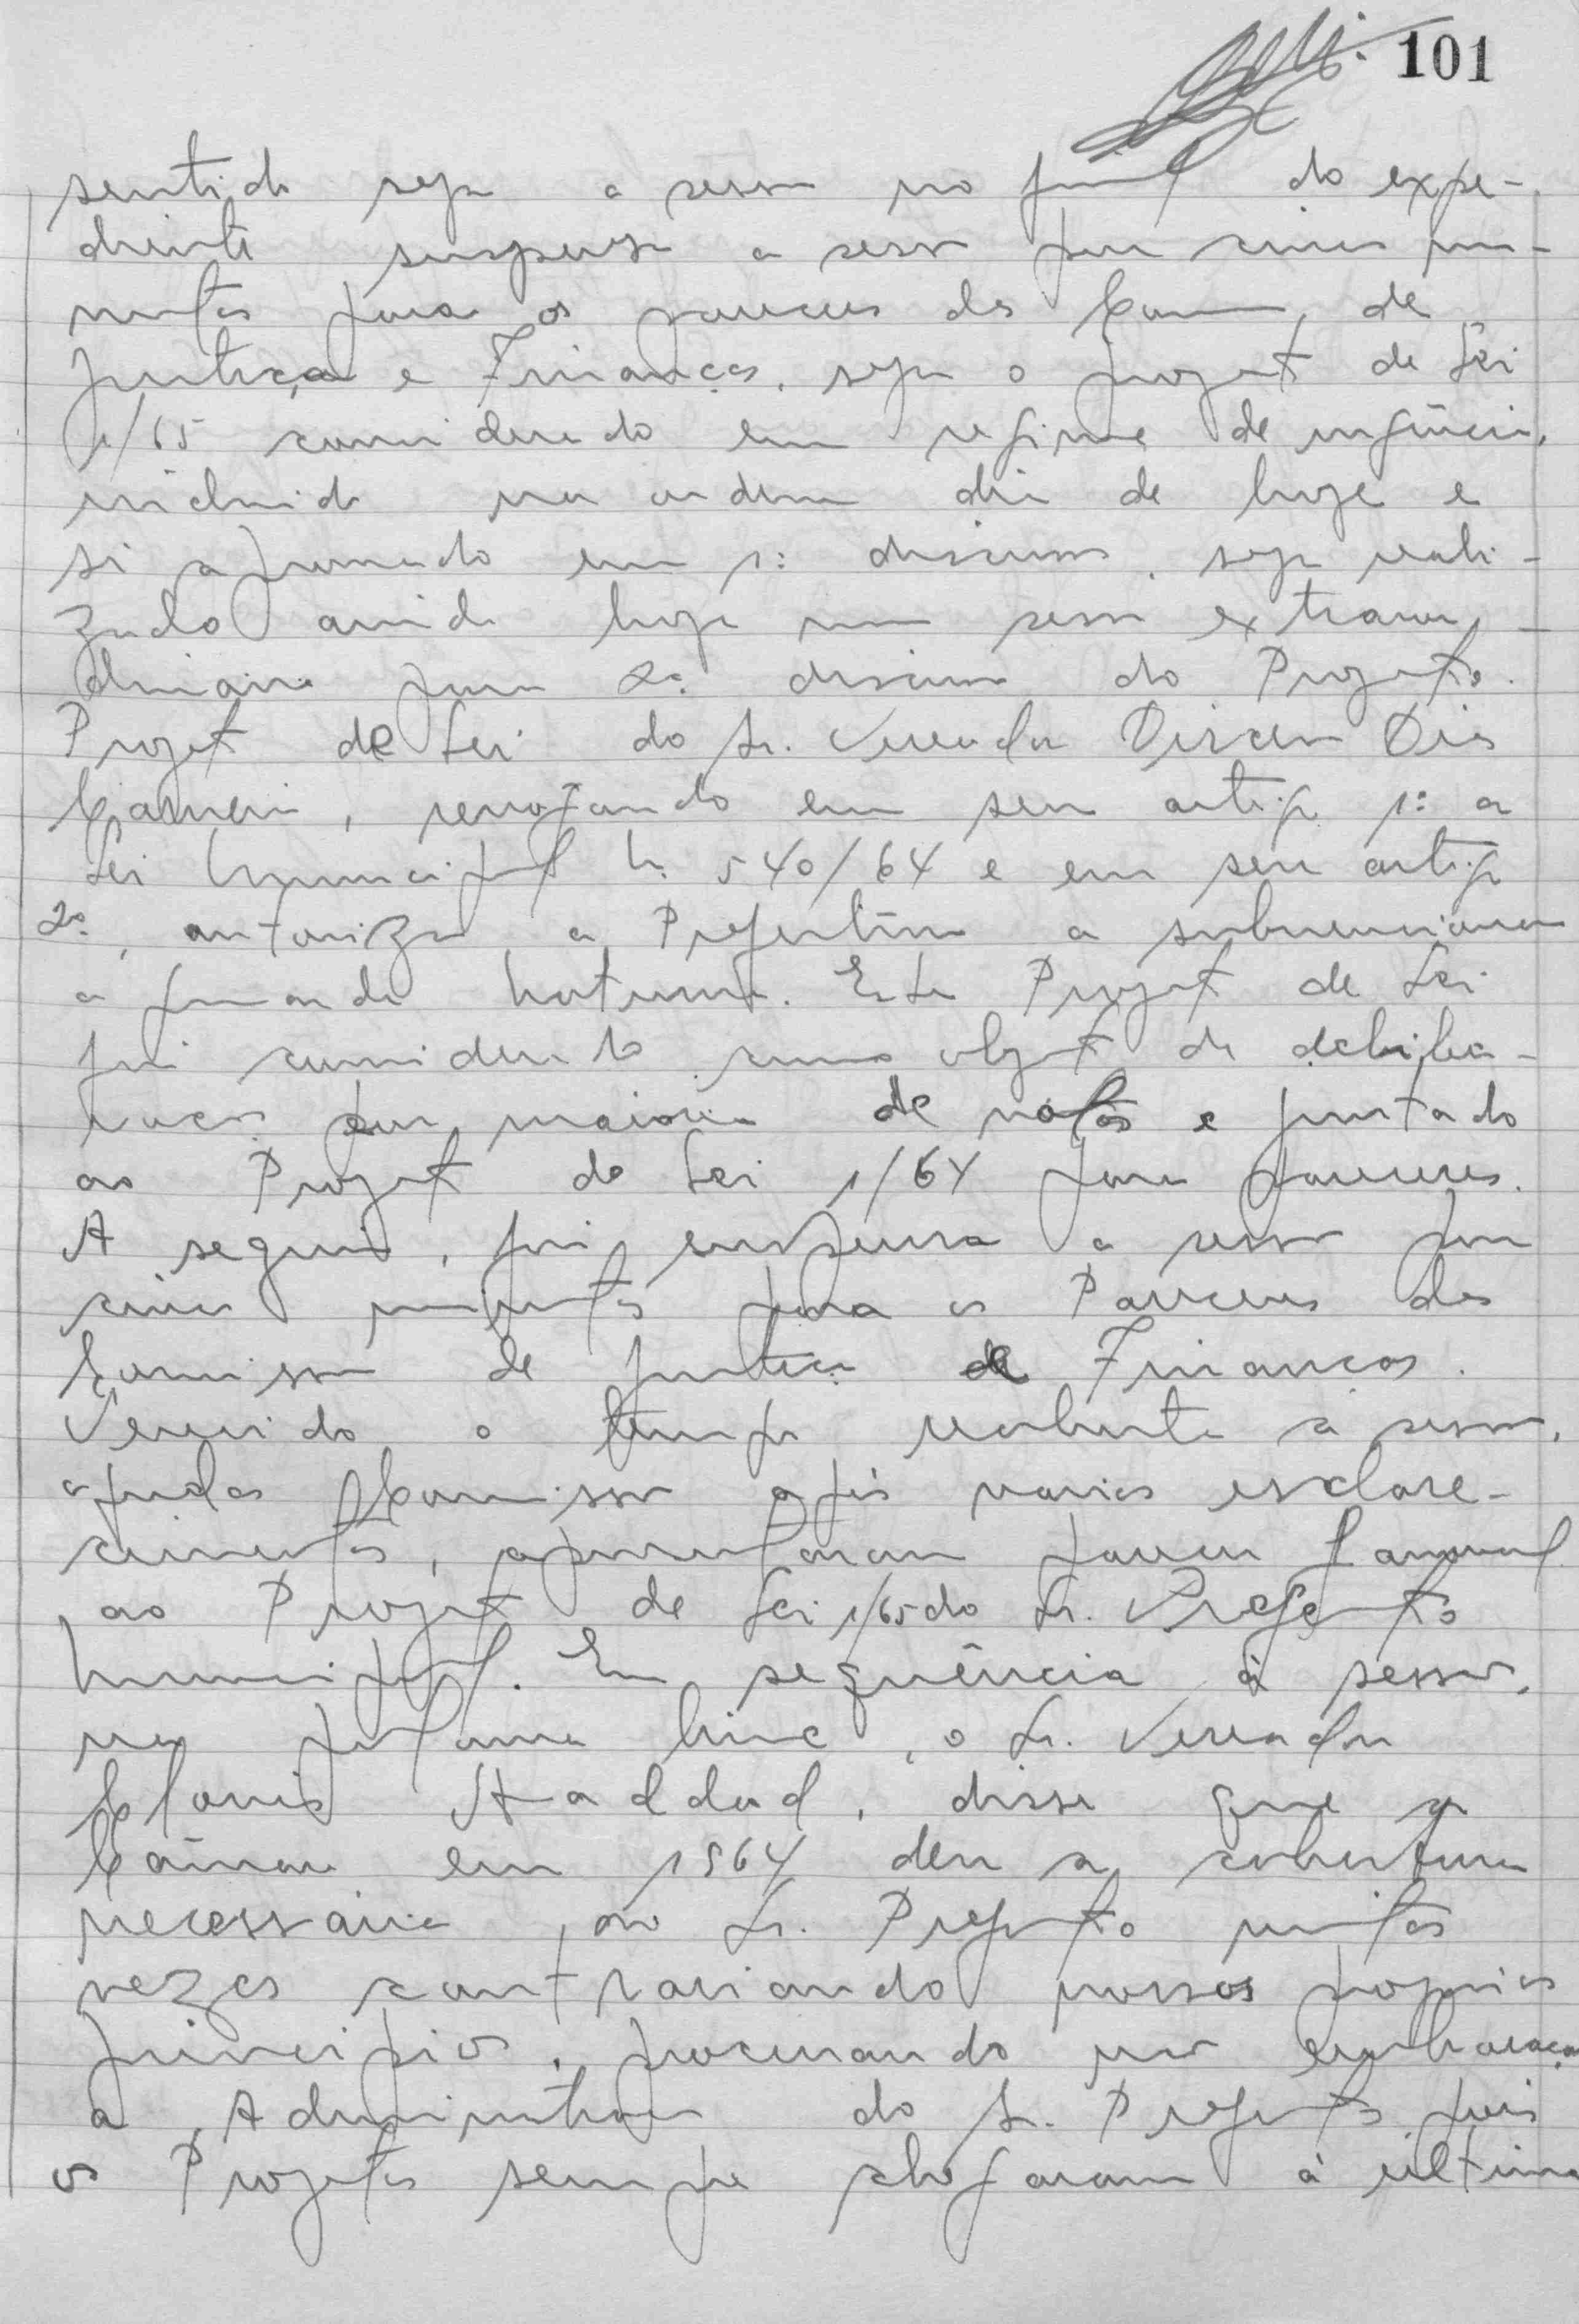 101
sentido seja a sessão no final do expe-
diente suspensa a sessão por cinco mi-
nutos para os pareceres das Comis. de
Justiça e Finanças. seja o projeto de Lei
1/65 considerado em regime de urgência,
incluido na ordem dia de hoje e
si aprovado em 1ª discussão, seja reali-
zado ainda hoje uma sessão extraor-
dinaria para 2ª discussão do Projeto.
Projeto de Lei do Sr. Vereador Dirceu Dias
Carneiro, revogando em seu artigo 1º a
Lei Municipal n. 540/64 e em seu artigo
2º, autoriza a Prefeitura a subvencionar
a guarda noturna. Este Projeto de Lei
foi considerado como objeto de delibe-
ração por maioria de votos e juntado
ao Projeto de Lei 1/64 para pareceres.
A seguir, foi suspensa a sessão por
cinco minutos para os Pareceres das
Comissão de Justiça e Finanças.
Vencido o tempo reaberta a sessão,
as Comissão após varios esclare-
cimentos, apresentaram parecer favoravel
ao Projeto de Lei 1/65 do Sr. Prefeito
Municipal. Em sequência à sessão,
na palavra livre, o Sr. Vereador
Clovis Haddad, disse que a
Câmara em 1964 deu a cobertura
necessária, ao Sr. Prefeito muitas
vezes contrariando nossos proprios
principios, procurando não embaraçar
a Administração do Sr. Prefeito, pois
os Projetos sempre chegaram à última